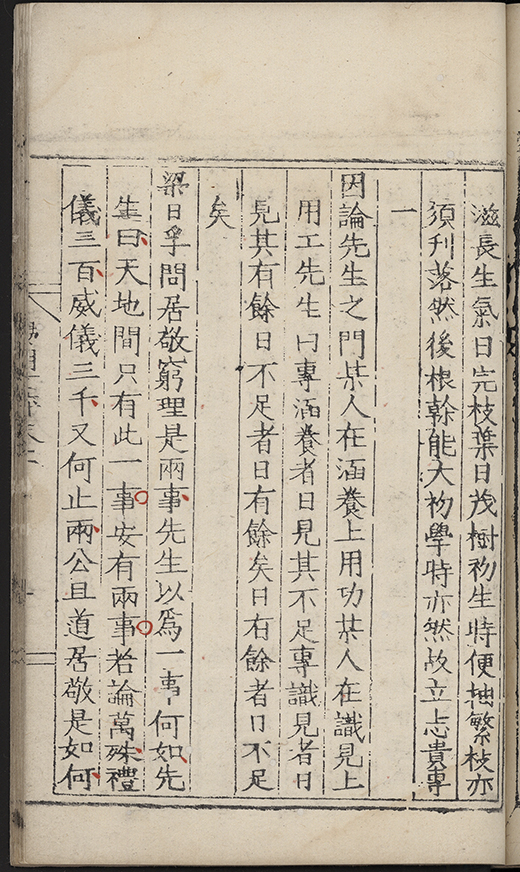 滋長生氣日完枝葉日茂樹初生時便抽繁枝亦
須刋落然後根幹能大初學時亦然故立志貴專
一
因論先生之門某人在涵養上用功某人在識見上
用工先生曰專涵養者日見其不足專識見者日
見其有餘日不足者日有餘矣日有餘者日不足
矣
梁日孚問居敬窮理是兩事先生以爲一事何如先
生曰天地間只有此一事安有兩事若論萬殊禮
儀三百威儀三千又何止兩公且道居敬是如何